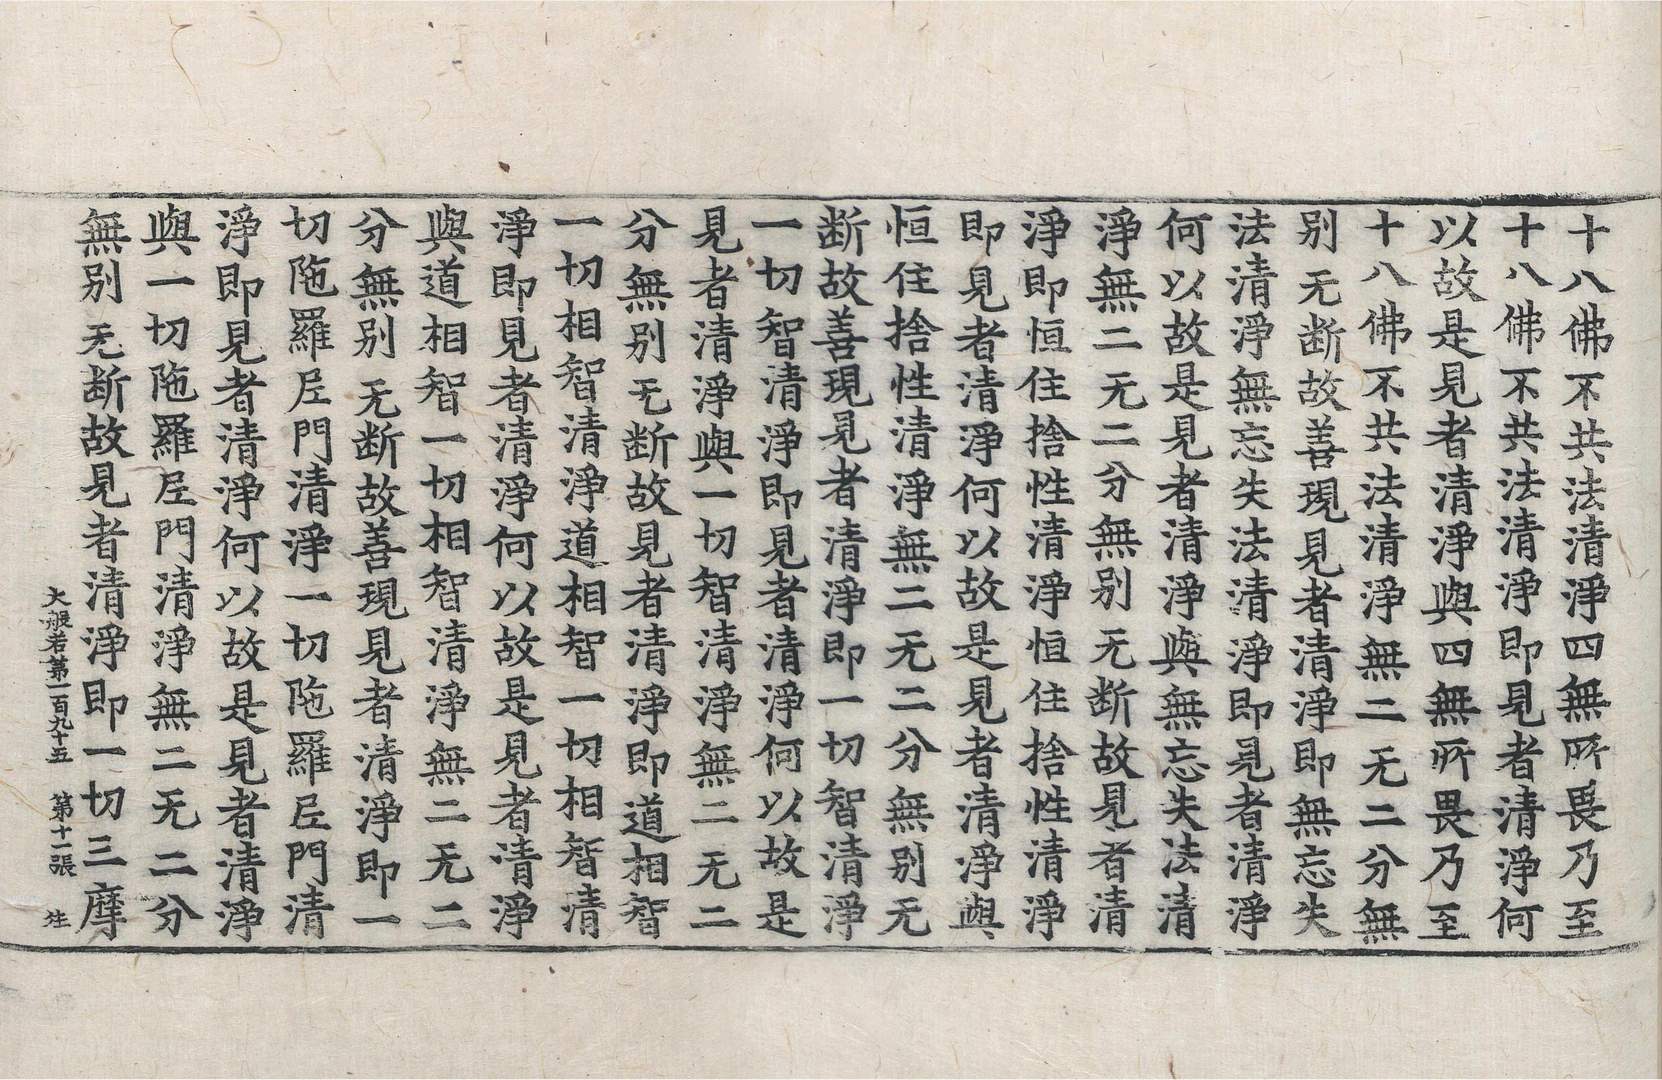 十八佛不共法清淨四無所畏乃至
十八佛不共法清淨即見者清淨何
以故是見者清淨與四無所畏乃至
十八佛不共法清淨無二无二分無
别无断故善現見者清淨即無忘失
法清淨無忘失法清淨即見者清淨
何以故是見者清淨與無忘失法清
淨無二无二分無别无断故見者清
淨即恒住捨性清淨恒住捨性清淨
即見者清淨何以故是見者清淨與
恒住捨性清淨無二无二分無别无
断故善現見者清淨即一切智清淨
一切智清淨即見者清淨何以故是
見者清淨與一切智清淨無二无二
分無别无断故見者清淨即道相智
一切相智清淨道相智一切相智清
淨即見者清淨何以故是見者清淨
與道相智一切相智清淨無二无二
分無别无断故善現見者清淨即一
切陁羅尼門清淨一切陁羅尼門清
淨即見者清淨何以故是見者清淨
與一切陁羅尼門清淨無二无二分
無别无断故見者清淨即一切三摩
大般若第一百九十五 第十一張